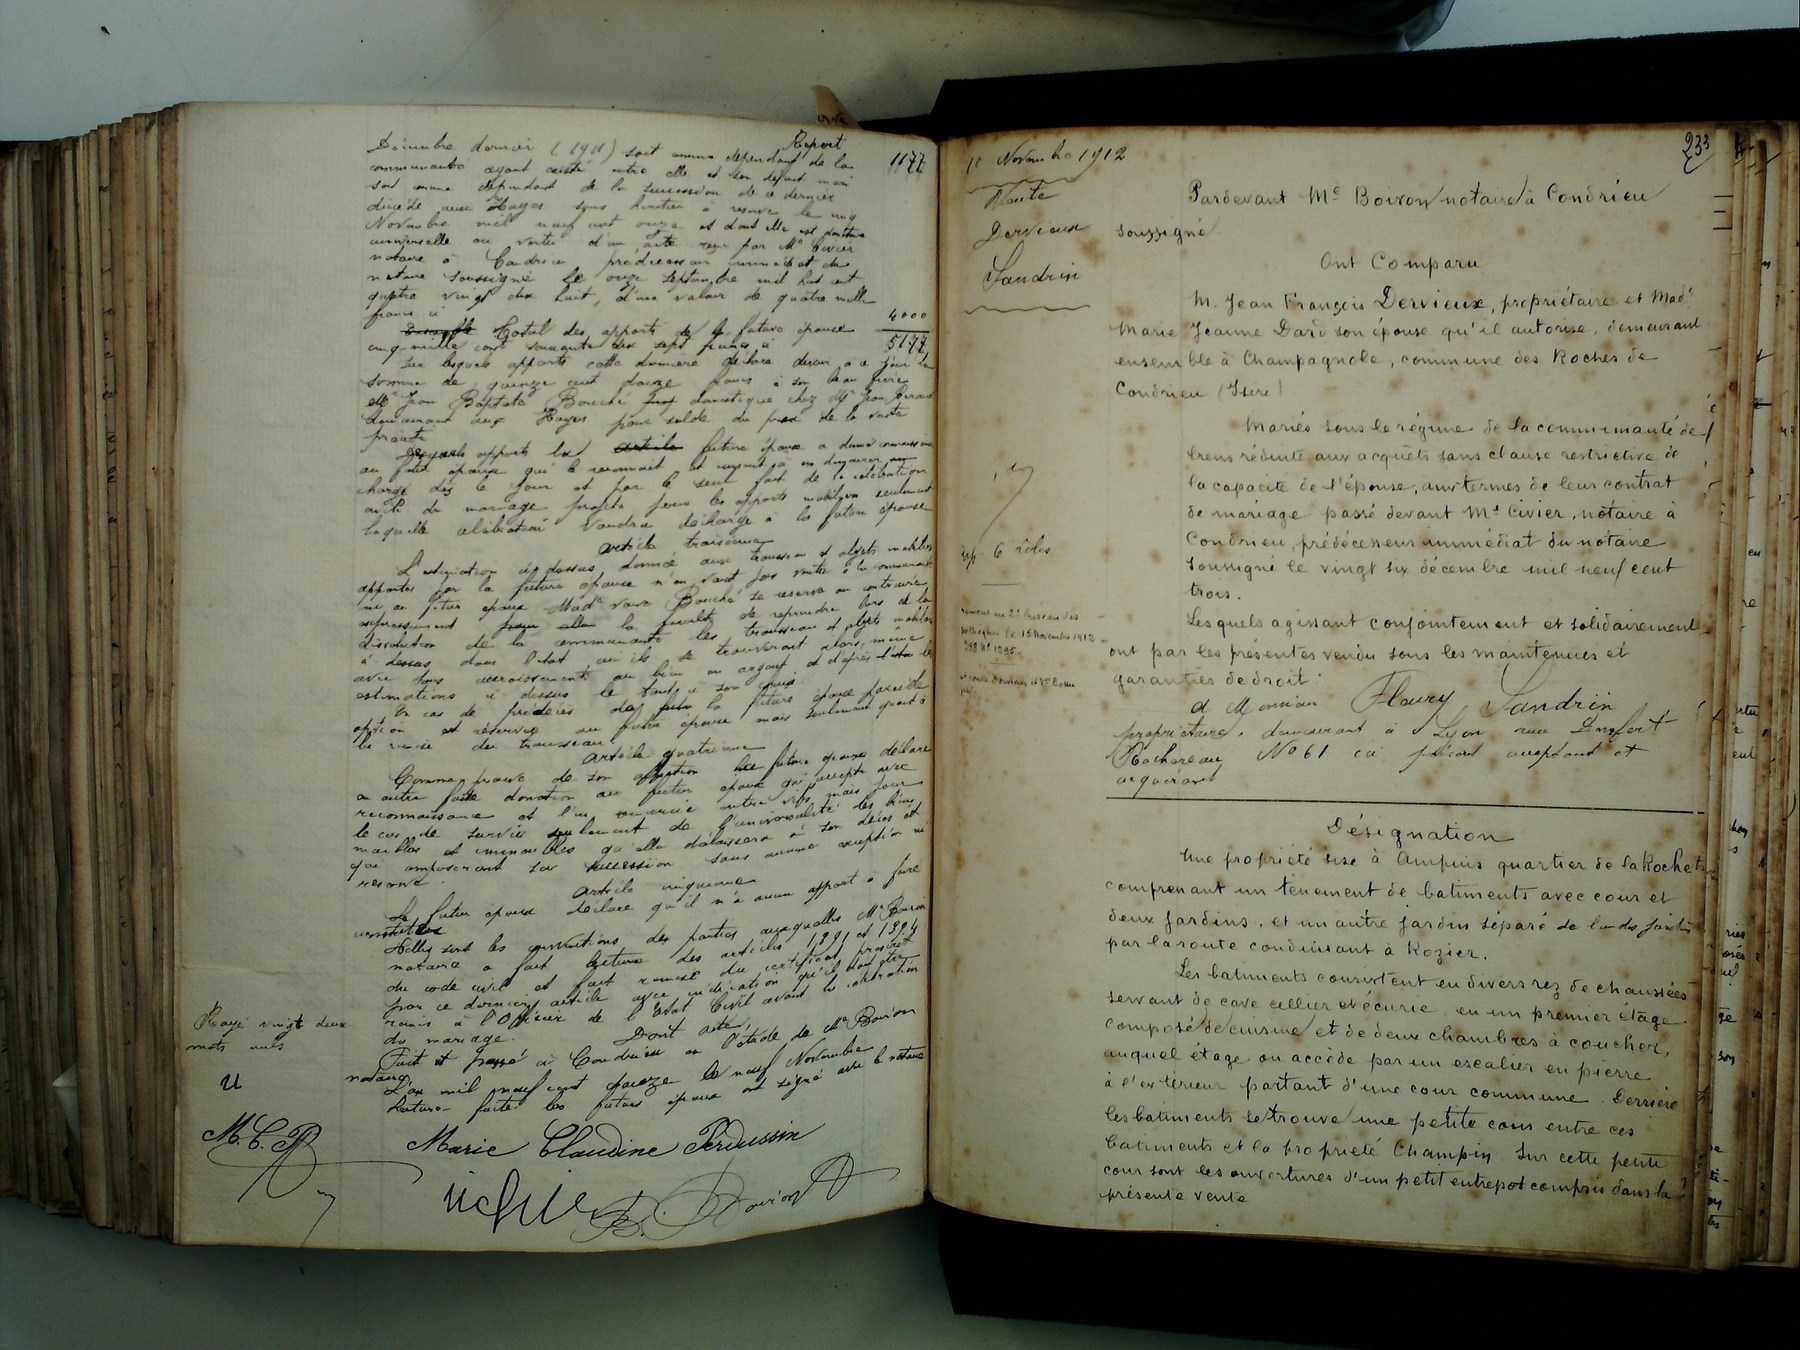 Report
Décembre dernier (1911) soit comme dépendant de la 1177
communauté ayant existé entre elle et son défunt mari
soit comme dépendant de la succession de ce dernier
décédé aux Hayes sans héritier à réserve le cinq
Novembre mil neuf cent onze et dont elle est donataire
universelle en vertu d'un acte reçu par Me Civier
notaire à Condrieu prédécesseur immédiat du
notaire soussigné le onze septembre mil huit cent
quatre vingt dix huit, d'une valeur de quatre mille
francs ci 4000
Total des apports de la future épouse
cinq mille cent soixante dix sept francs ci 5177
Sur lesquels apports cette dernière déclare devoir à ce jour la
somme de quinze cent douze francs à son beau frère
Mr Jean Baptiste Bouché domestique chez Mr Jean
demeurant aux Hayes pour solde du prix de la vente
précitée
Desquels apports la future épouse a donné connaissance
au futur époux qui le reconnait et consent à en demeurer
chargé dès ce jour et par le seul fait de la célébration
du mariage projeté pour les apports mobiliers seulement
laquelle célébration vaudra décharge à la future épouse
Article troisième
L'estimation ci dessus donnée aux trousseau et objets mobiliers
apportés par la future épouse n'en vaut pas vente à la communauté
ni au futur époux Made veuve Bouché se réserve au contraire
expressément la faculté de reprendre lors de la
dissolution de la communauté les trousseau et objets mobiliers
ci dessus dans l'état où ils se trouveront alors, même
avec sans accroissement ou bien en argent et d'après les
estimations ci dessus le tout à son choix
En cas de prédécès de la future épouse pareille
option est réservée au futur époux mais seulement quant à
la reprise du trousseau
Article quatrième
Comme preuve de son affection la future épouse déclare
en outre faire donation au futur époux qui accepte avec
reconnaissance et l'en remercie entre vifs mais pour
le cas de survie seulement de l'universalité des biens
meubles et immeubles qu'elle délaissera à son décès et
qui composeront sa succession sans aucune exception ni
réserve.
Article cinquième
Le futur époux déclare qu'il n'a aucun apport à faire
constater
Telles sont les conventions des parties auxquelles Me Boiron
notaire a fait lecture des articles 1391 et 1394
du code civil et fait remise du certificat prescrit
par ce dernier article avec indication qu'il doit être
remis à l'Officier de l'Etat Civil avant la célébration
du mariage.
Dont acte,
Fait et passé à Condrieu en l'étude de Me Boiron
notaire
L'an mil neuf cent douze le neuf Novembre
Lecture faite les futurs époux ont signé avec le notaire
Rayé vingt deux
mots nuls
M.C.P
Marie Claudine Perdussin
Boiron
233
10 Novembre 1912
Vente
Dervieux
Sandrin
Pardevant Me Boiron notaire à Condrieu
soussigné
Ont Comparu
M. Jean François Dervieux, propriétaire et Made
Marie Jeanne Dard son épouse qu'il autorise, demeurant
ensemble à Champagnole, commune des Roches de
Condrieu (Isère)
Mariés sous le régime de la communauté de
biens réduite aux acquêts sans clause restrictive de
la capacité de l'épouse, aux termes de leur contrat
de mariage passé devant Me Civier, notaire à
Condrieu, prédécesseur immédiat du notaire
soussigné le vingt six décembre mil neuf cent
trois.
Lesquels agissant conjointement et solidairement
ont par les présentes vendu sous les maintenues et
garanties de droit.
à Monsieur Fleury Sandrin
propriétaire, demeurant à Lyon rue Denfert
Rochereau No 61 ici présent acceptant et
acquérant
6 rôles
15 Novembre 1912
Désignation
Une propriété sise à Ampuis quartier de la Rochette
comprenant un tenement de batiments avec cour et
deux jardins, et un autre jardin séparé de l'un des jardins
par la route conduisant à Rozier.
Les batiments consistent en divers rez de chaussées
servant de cave cellier et écurie en un premier étage
composé de cuisine et de deux chambres à coucher,
auquel étage on accède par un escalier en pierre
à l'extérieur partant d'une cour commune. Derrière
les batiments se trouve une petite cour entre ces
batiments et la propriété Champin. Sur cette petite
cour sont les ouvertures d'un petit entrepot compris dans la
présente vente